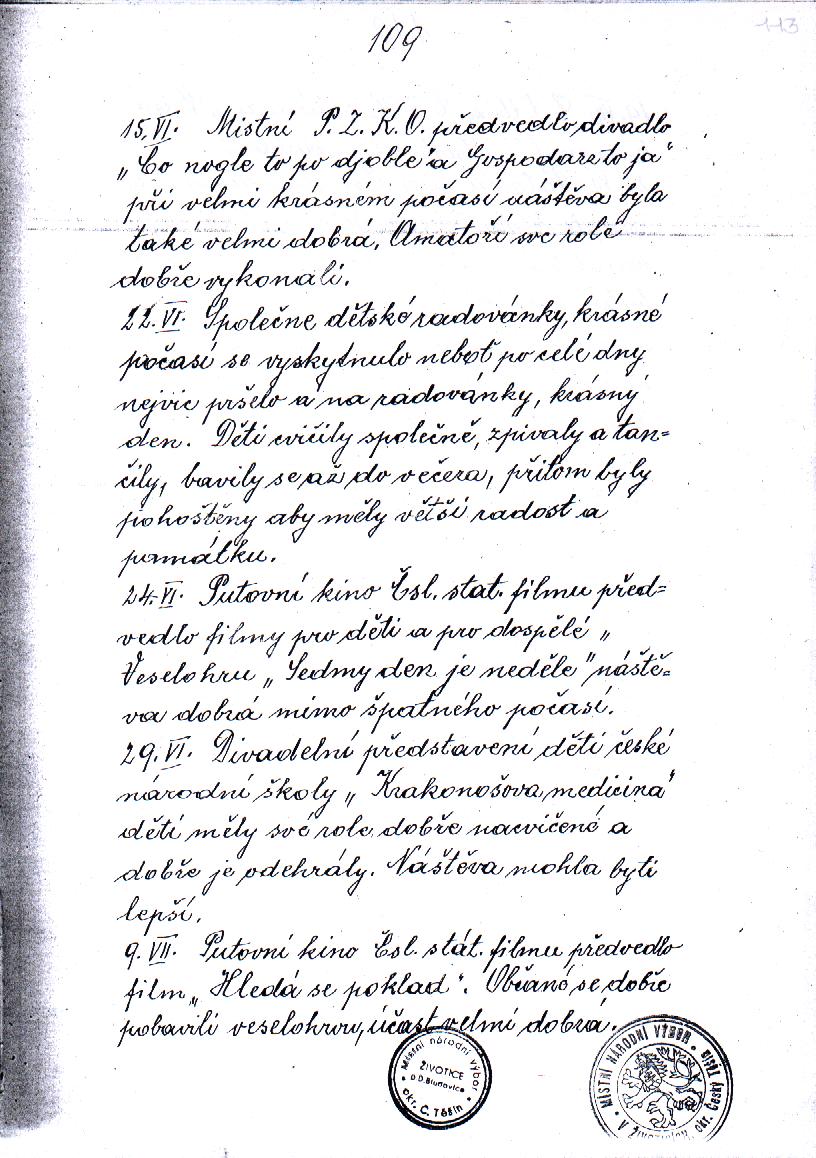 109
113
15.VI. Mistní P. Z. K. O. předvedlo divadlo
„Co nogle to po djoble" a Gospodarz to ja"
při velmi krásném počasí náštěva byla
také velmi dobrá. Amatoři sve role
dobře vykonali.
22.VI. Společne dětské radovánky, krásné
počasi se vyskytnulo neboť po celé dny
nejvic pršelo a na radovánky, krásný
den. Děti cvičily společně, zpivaly a tan=
čily, bavily se až do večera, přitom byly
pohoštěny aby měly větší radost a
památku.
24.VI. Putovní kino Čsl. stat. filmu před=
vedlo filmy pro děti a pro dospělé „
Veselohru „ Sedmy den je neděle" náště=
va dobrá mimo špatného počasí.
29.VI. Divadelní představení děti české
národní školy „ Krakonošova medicina"
děti měly své role dobře nacvičené a
dobře je odehrály. Náštěva mohla byti
lepší.
9.VII. Putovní kino Čsl. stát. filmu předvedlo
film „ Hledá se poklad". Občané se dobře
pobavili veselohrou, účast velmi dobrá.
Místní národní výbor
ŽIVOTICE
p.D.Bludovice
okr. Č. Těšín
MÍSTNÍ NÁRODNÍ VÝBOR
V ŽIVOTICÍCH, okr. Český